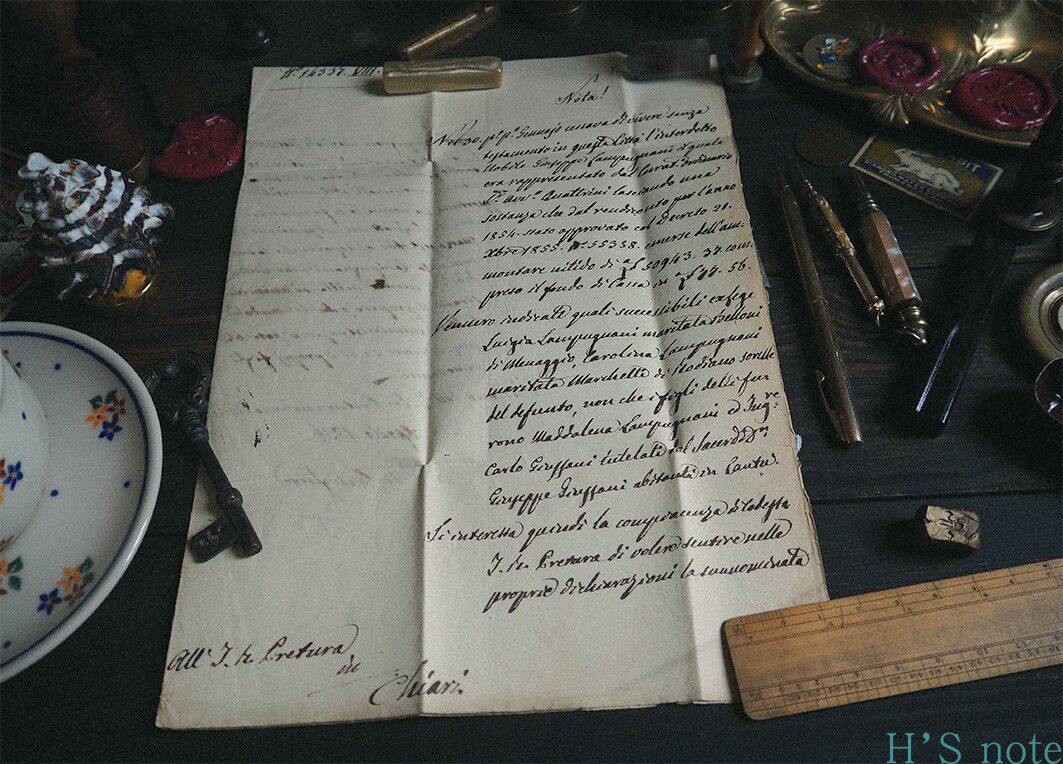 N.º 14337. VIII.
Nota!
Nel 30. p.º p.º Gennajo cessava di vivere senza
testamento in questa Città l'interdetto
Nobile Giuseppe Lampugnani il quale
era rappresentato dal Curat.e Ordinario
S.r Avv.o Quattrini lasciando una
sostanza che dal rendiconto per l'anno
1854. stato approvato col Decreto 21.
Xbre 1855. N.º 55338. emerse dell'am-
montare nitido di 50943. 37 com-
preso il fondo di Cassa in 44. 56.
Vennero indicate quali successibili ex lege
Luigia Lampugnani maritata Belloni
di Menaggio, Carolina Lampugnani
maritata Marchetti di sorelle
del defunto, non che i figli della fu
Maddalena Lampugnani ed Ing.re
Carlo Giussani tutelati dal Sacerd.
Giuseppe Giussani abitanti in Cantù.
Si interessa quindi la compiacenza di codesta
I. R. Pretura di volere sentire nelle
proprie dichiarazioni la sunnominata
All' I. R. Pretura
in
Chiari.
H'S note